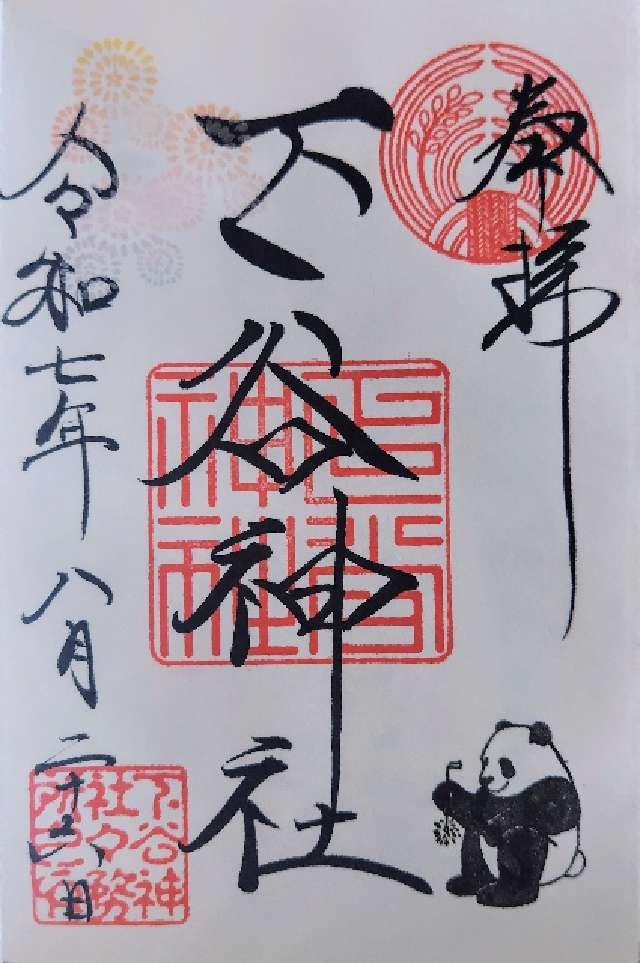 奉拝
下谷神社
令和七年八月二十六日
下谷神
社々務
所之印